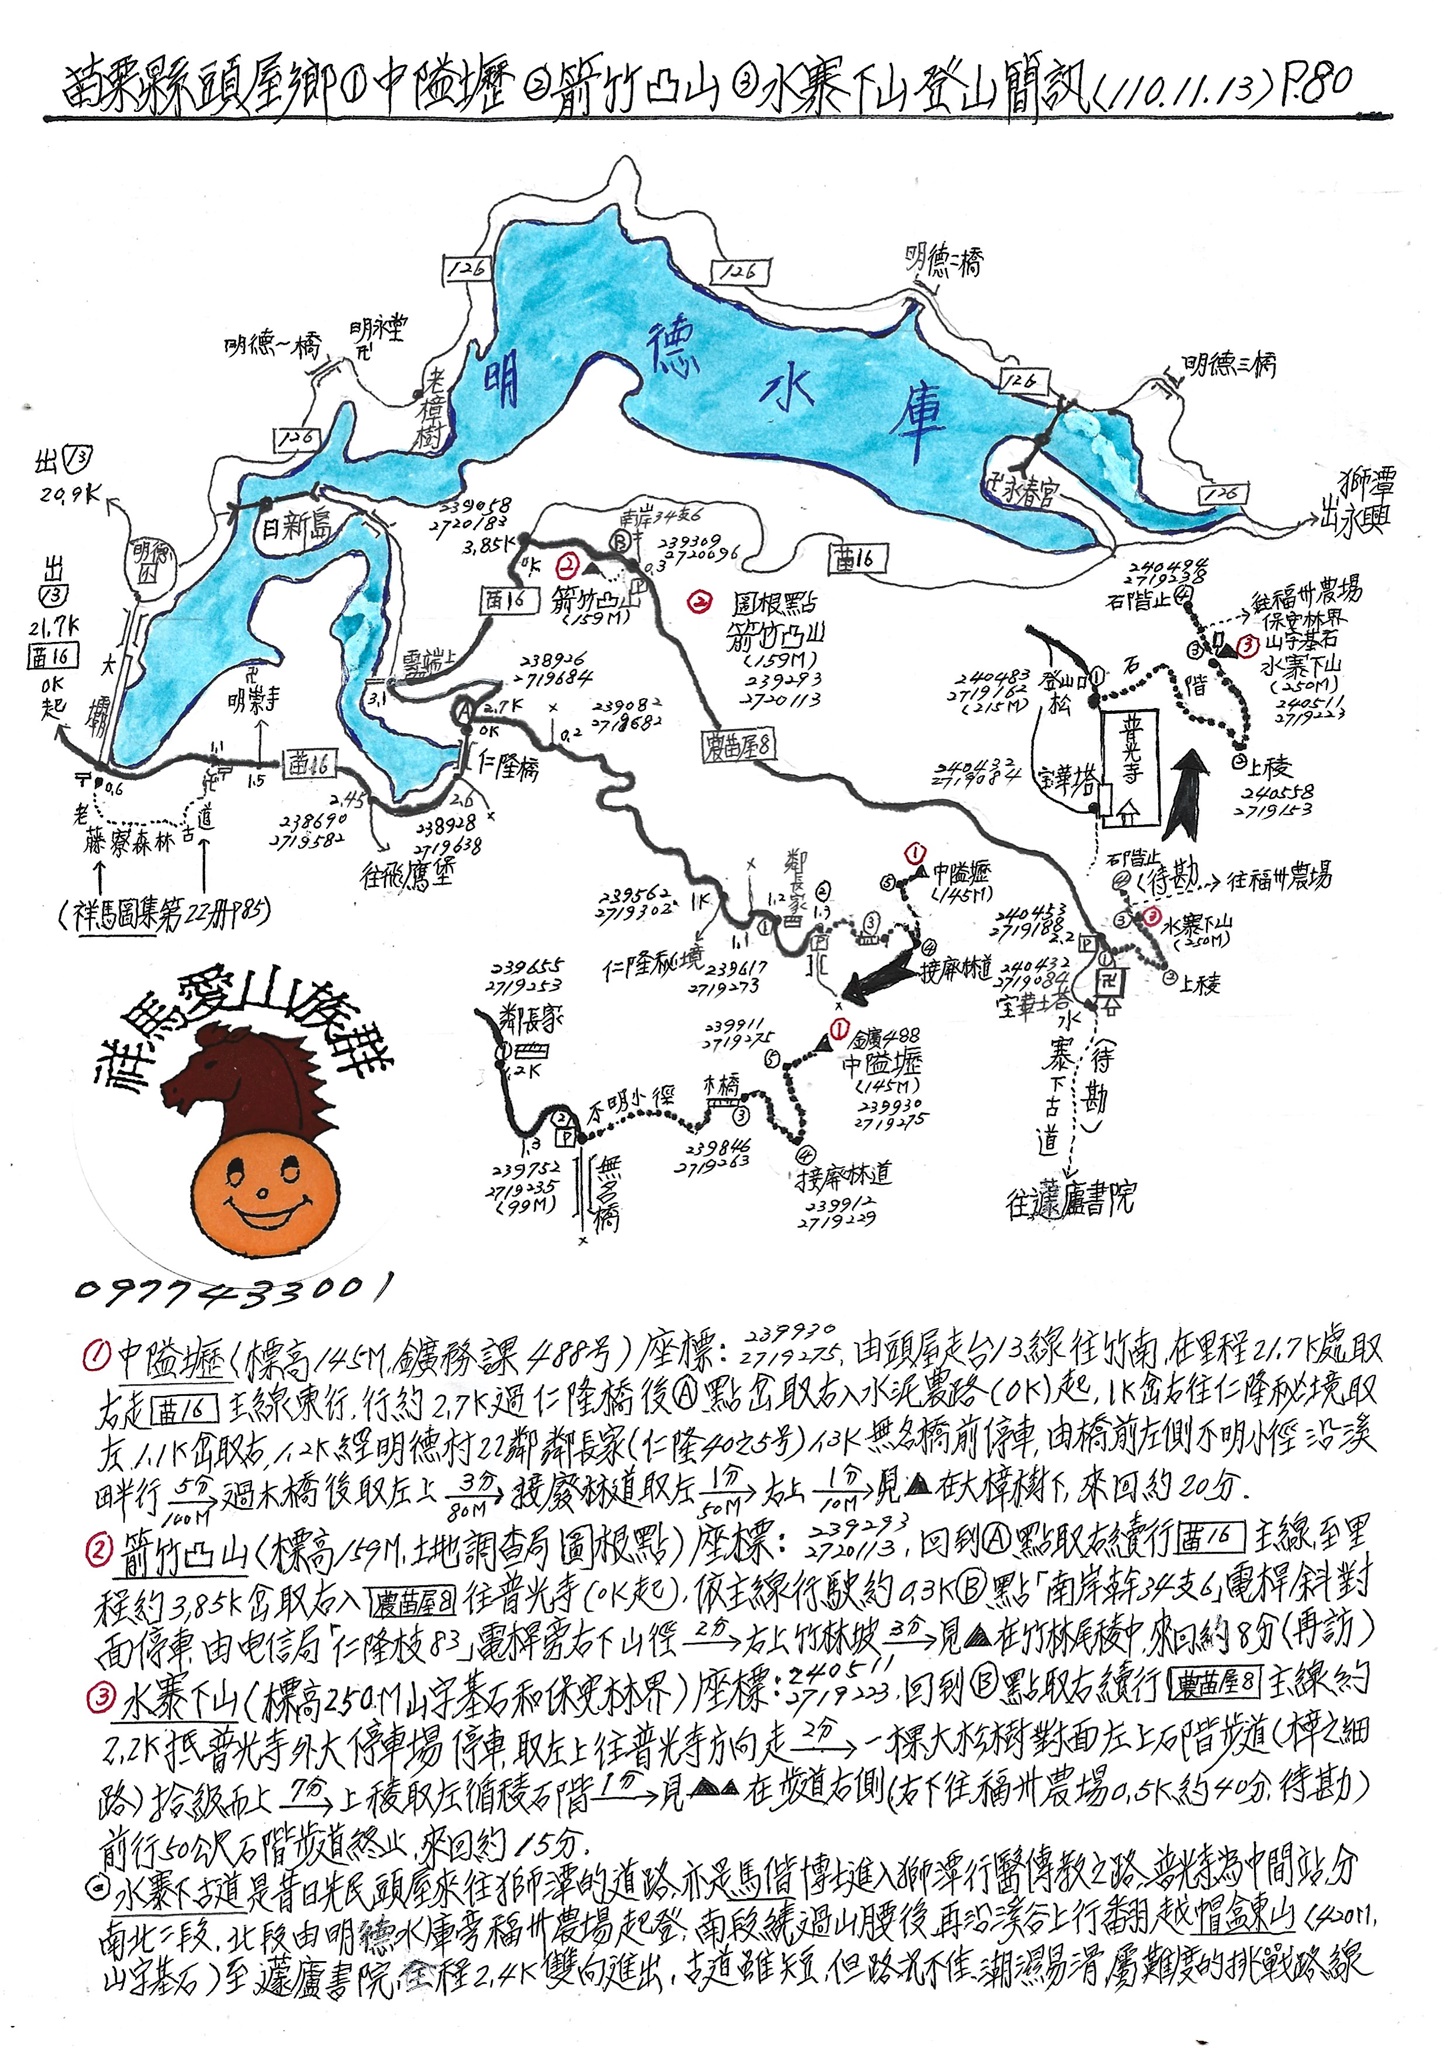 苗栗縣頭屋鄉①中隘壢②箭竹凸山③水寨下山登山簡訊(110.11.13)P.80
126
126
明德二橋
明德一橋
明永堂
卍
老樟樹
明德水庫
126
明德三橋
126
出13
20.9K
日新島
卍永春宮
126
獅潭
出永興
239058
2720183
3.85K
0K
南岸34支6
B
239309
2720696
0.3
P
苗16
明德
出
13
21.7K
苗16
0K
起
大壩
②
箭竹凸山
(159M)
苗16
② 圖根點
箭竹凸山
(159M)
239293
2720113
240494
2719238
石階止④
往福卅農場
保安林界
③山字基石
水寨下山
(250M)
240511
2719223
③
240483
2719162
(215M)
登山口①
松
石階
普光寺
②上稜
240558
2719153
240432
2719084
宝華塔
雲端上
3.1
238926
2719684
A
2.7K
0K
239082
2719682
0.2
仁隆橋
農苗屋8
卍
明崇寺
1.5
1.1
苗16
0.6
老藤寮森林古道
2.45
238690
2719582
2.6
238928
2719638
往飛鷹堡
(祥馬圖集第22册P85)
239562
2719302
1K
仁隆秘境
1.1
239617
2719273
1.2
①
鄰長家
②
1.3
P
③
④接廢林道
⑤
①
中隘壢
(145M)
石階止
④(待勘)
往福卅農場
③
③水寨下山
(250M)
②上稜
240453
2719188
2.2
P
①
卍
240432
2719084
宝華塔
水寨下古道
(待勘)
往蓬廬書院
祥馬愛山族群
0977433001
239655
2719253
鄰長家
①
1.2K
②
P
1.3
239752
2719235
(99M)
無名橋
不明小徑
木橋
③
239846
2719263
④
接廢林道
239912
2719229
239911
2719275
⑤
①
金廣488
中隘壢
(145M)
239930
2719275
①中隘壢(標高145M,鑛務課488号)座標：239930 2719275,由頭屋走台13線往竹南,在里程21.7K處取
右走苗16主線東行,行約2.7K過仁隆橋後A點岔取右入水泥農路(0K)起,1K岔右往仁隆秘境取
左,1.1K岔取右,1.2K經明德村22鄰鄰長家(仁隆40之5号)1.3K無名橋前停車,由橋前左側不明小徑沿溪
畔行5分140M→過木橋後取左上3分80M→接廢林道取左1分50M→右上1分10M→見▲在大樟樹下,來回約20分.
②箭竹凸山(標高159M,土地調查局圖根點)座標：239293 2720113,回到A點取右續行苗16主線,至里
程約3.85K岔取右入農苗屋8往普光寺(0K起),依主線行駛約0.3KB點「南岸幹34支6」電桿斜對
面停車,由电信局「仁隆枝83」電桿旁右下山徑2分→右上竹林坡3分→見▲在竹林尾稜中,來回約8分(再訪)
③水寨下山(標高250.M山字基石和保安林界)座標：240511 2719223,回到B點取右續行農苗屋8主線約
2.2K抵普光寺外大停車場停車,取左上往普光寺方向走2分→一棵大松樹對面左上石階步道(樟之細
路)拾級而上7分→上稜取左循稜石階1分→見▲▲在步道右側(右下往福卅農場0.5K約40分,待勘)
前行50公尺石階步道終止,來回約15分.
⊙水寨下古道是昔日先民頭屋來往獅潭的道路,亦是馬偕博士進入獅潭行醫傳教之路,普光寺為中間站,分
南北二段,北段由明德水庫旁福卅農場起登,南段繞過山腰後,再沿溪谷上行翻越帽盒東山(420M,
山字基石)至蓬廬書院,全程2.4K雙向進出,古道雖短,但路况不佳,潮濕易滑,屬難度的挑戰路線